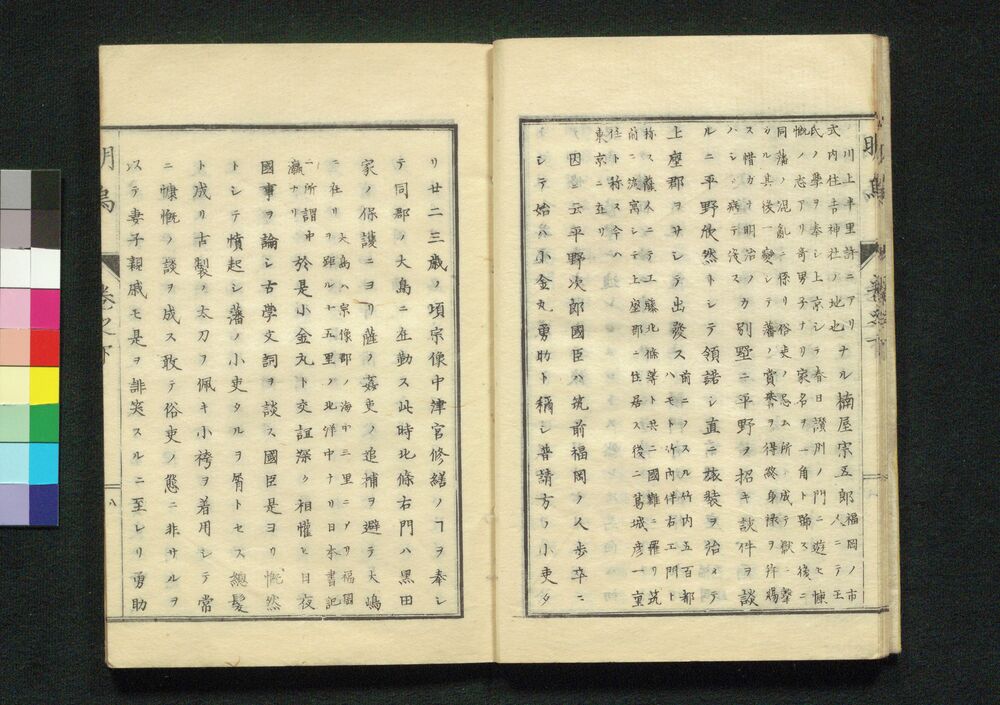 ノ川上半里許ニアリ
式内住吉神社ノ地也
ナル楠屋宗五郎
福岡ノ市
人ニテ王
氏ノ學ヲ奉シ上京シテ春日讃州ノ門ニ遊ヒ慷
慨ノ志アリ奇男子ナリ家名ヲ一角ト號ス後ニ
同藩ノ混亂ニ係リ俗吏ノ忌ム所ト成テ獄ニ繫
カル其後一變シテ藩ノ賞典ヲ得終身禄ヲ許賜
ス惜カナ明治ノ
ハシ病テ没ス
カ別墅ニ平野ヲ招キ談件ヲ談
ルニ平野欣然トシテ領諾シ直ニ旅装ヲ治メテ
上座郡ヲサシテ出發ス
前ニノスル竹内五百都
ハモト竹内伴右エ門ト
称ス薩人ニテ工藤北條等ト共ニ國難ニ罹リ筑
前ニ流寓シテ上座郡ニ住居ス後ニ葛城彦一重
任ト称ス今ハ
東京ニ在リ
因ニ云平野次郎國臣ハ筑前福岡ノ人歩卒ニ
シテ始ハ小金丸勇助ト稱シ普請方ノ小吏タ
リ廿二三歳ノ頃宗像中津宮修繕ノヿヲ奉シ
テ同郡ノ大島ニ在勤ス此時北條右門ハ黒田
家ノ保護ニヨリ薩ノ姦吏ノ追捕ヲ避テ大嶋
ニ在リ
大島ハ宗像郡ノ海中三里ニアリ福岡
ニ距ル十五里ノ北洋中ナリ日本書記
ニ所謂中
瀛ナリ
於是小金丸ト交誼深ク相懽ヒ日夜
國事ヲ論シ古學文詞ヲ談ス國臣是ヨリ慨然
トシテ憤起シ藩ノ小吏タルヲ屑トセス總髮
ト成リ古製ノ太刀ヲ佩キ小袴ヲ着用シテ常
ニ慷慨ノ談ヲ成ス敢テ俗吏ノ態ニ非サルヲ
以テ妻子親戚モ是ヲ誹笑スルニ至レリ勇助
明烏
卷之下
八